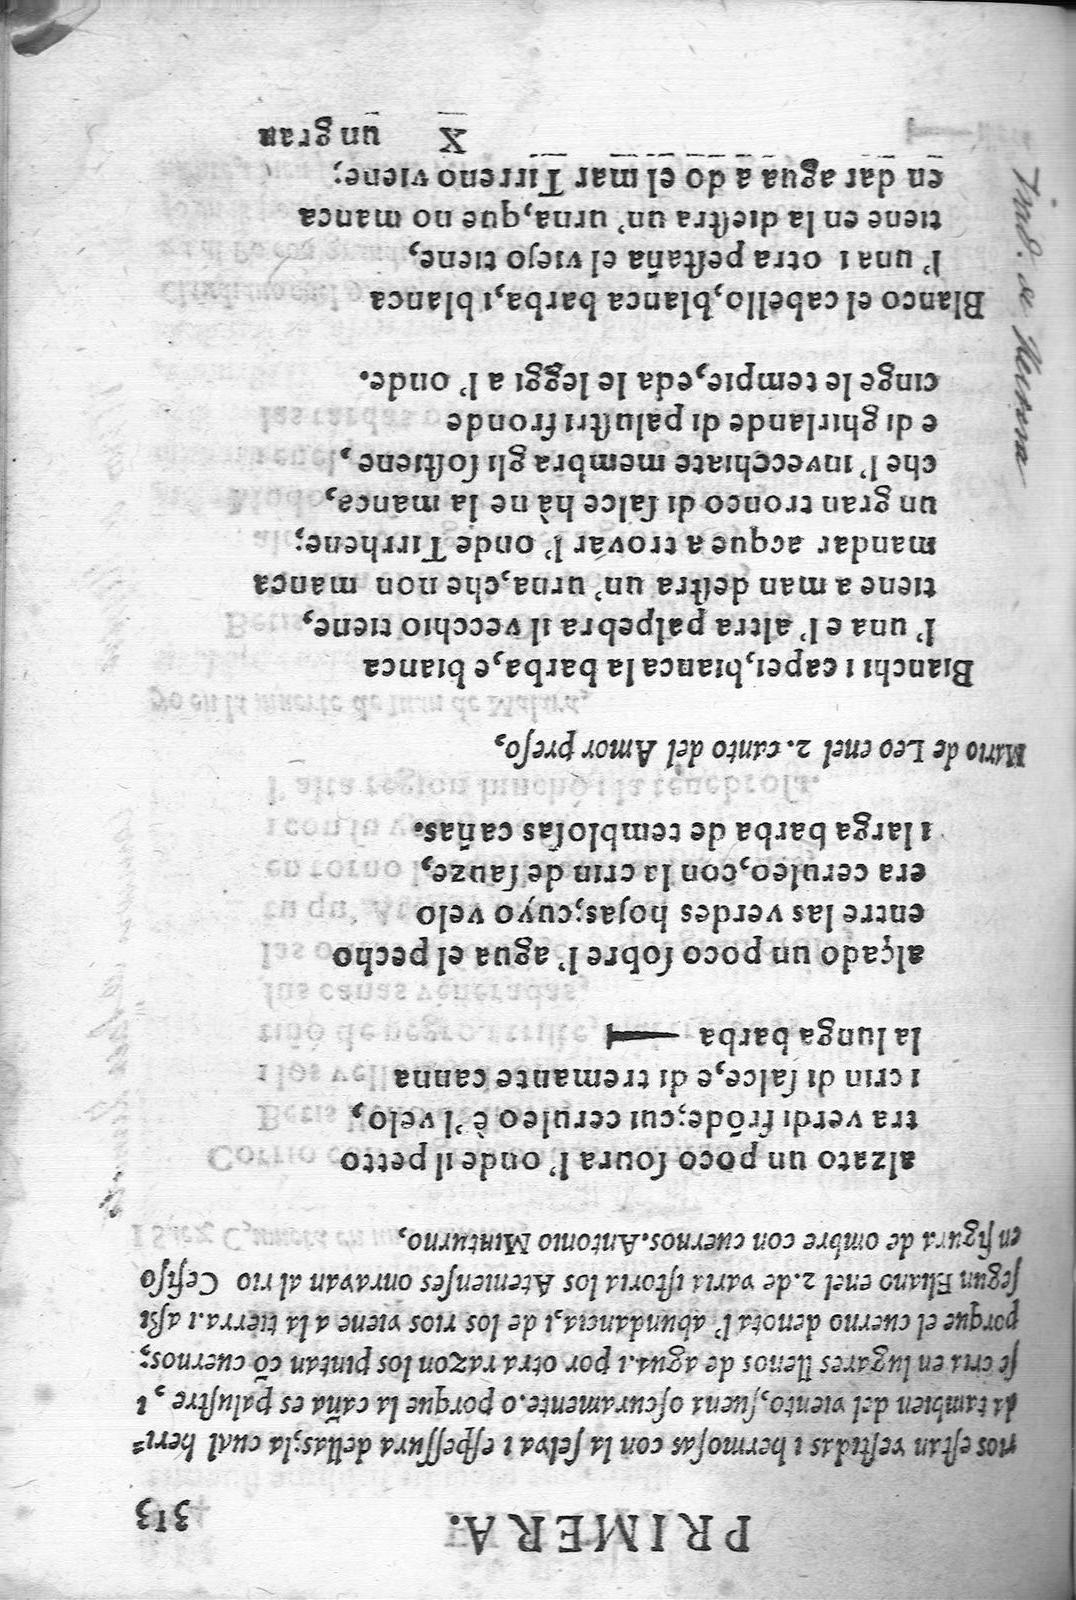 PRIMERA. 313
rios estan vestidas i hermosas con la selva i espessura dellas; la cual heri-
da tambien del viento, suena oscuramente. o porque la caña es palustre, i
se cria en lugares llenos de agua. i por otra razon los pintan cō cuernos;
porque el cuerno denota l' abundancia, i de los rios viene a la tierra. i assi
segun Eliano enel 2. de varia istoria los Atenienses onravan al rio Cefiso
en figura de ombre con cuernos. Antonio Minturno,
alzato un poco soura l' onde il petto
tra verdi frōde; cui ceruleo è 'l velo,
i crin di salce, e di tremante canna
la lunga barba
alçado un poco sobre l' agua el pecho
entre las verdes hojas; cuyo velo
era ceruleo, con la crin de sauze,
i larga barba de temblosas cañas.
Mario de Leo enel 2. canto del Amor preso,
Bianchi i capei, bianca la barba, e bianca
l' una e l' altra palpebra il vecchio tiene,
tiene a man destra un' urna, che non manca
mandar acque a trovar l' onde Tirrhene;
un gran tronco di salce hà ne la manca,
che l' invecchiate membra gli sostiene,
e di ghirlande di palustri fronde
cinge le tempie, e da le leggi a l' onde.
Blanco el cabello, blanca barba, i blanca
l' una i otra pestaña el viejo tiene,
tiene en la diestra un' urna, que no manca
en dar agua a do el mar Tirreno viene;
X un gran
Trad. de Herrera